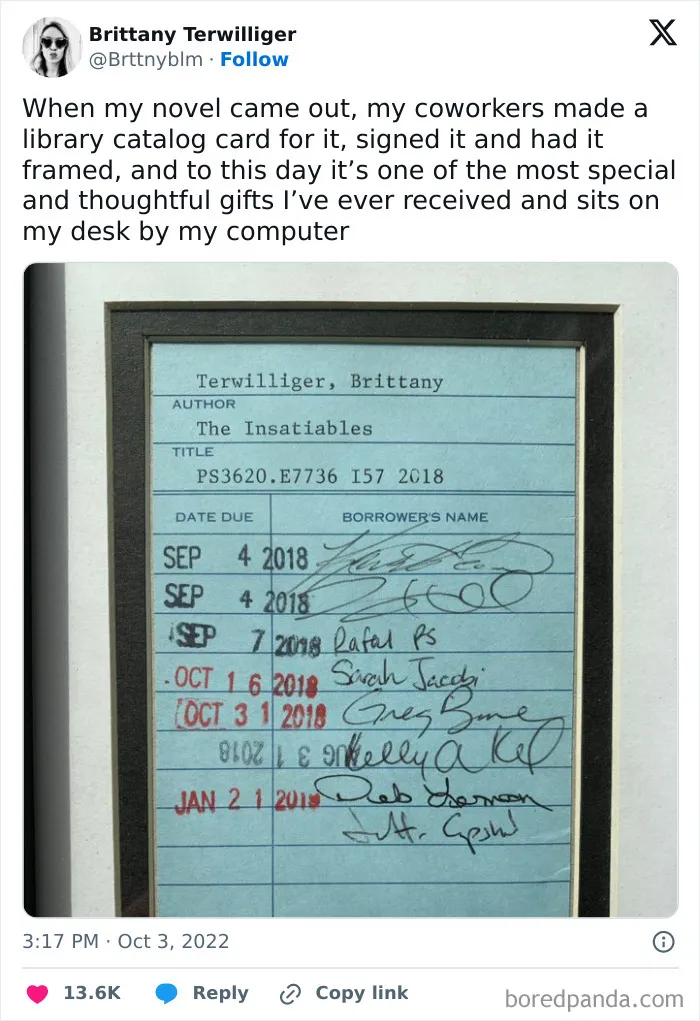 Brittany Terwilliger
@Brttnyblm · Follow
When my novel came out, my coworkers made a
library catalog card for it, signed it and had it
framed, and to this day it's one of the most special
and thoughtful gifts I've ever received and sits on
my desk by my computer
Terwilliger, Brittany
AUTHOR
The Insatiables
TITLE
PS3620.E7736 I57 2018
DATE DUE BORROWER'S NAME
SEP 4 2018
SEP 4 2018
SEP 7 2018 Rafal Ps
OCT 16 2018 Sarah Jacobi
OCT 31 2018 Greg
AUG 31 2018 Kelly A
JAN 21 Deb
3:17 PM · Oct 3, 2022
13.6K Reply Copy link
boredpanda.com